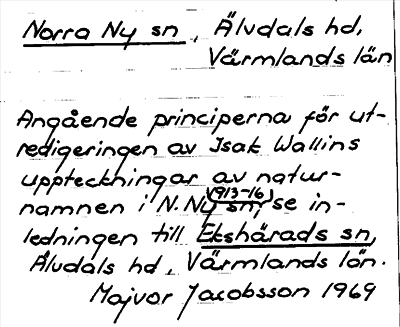 Norra Ny sn, Älvdals hd,
Värmlands län
Angående principerna för ut-
redigeringen av Isak Wallins
uppteckningar av natur-
namnen i N. Ny sn, 1913-16 se in-
ledningen till Ekshärads sn,
Älvdals hd, Värmlands län.
Majvor Jacobsson 1969